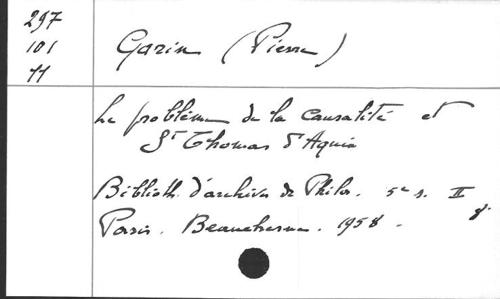 297
101
11
Garin (Pierre)
Le problème de la causalité et
St Thomas d'Aquin
Biblioth. d'archives de Philos. 5e s. II
Paris. Beauchesne. 1958.